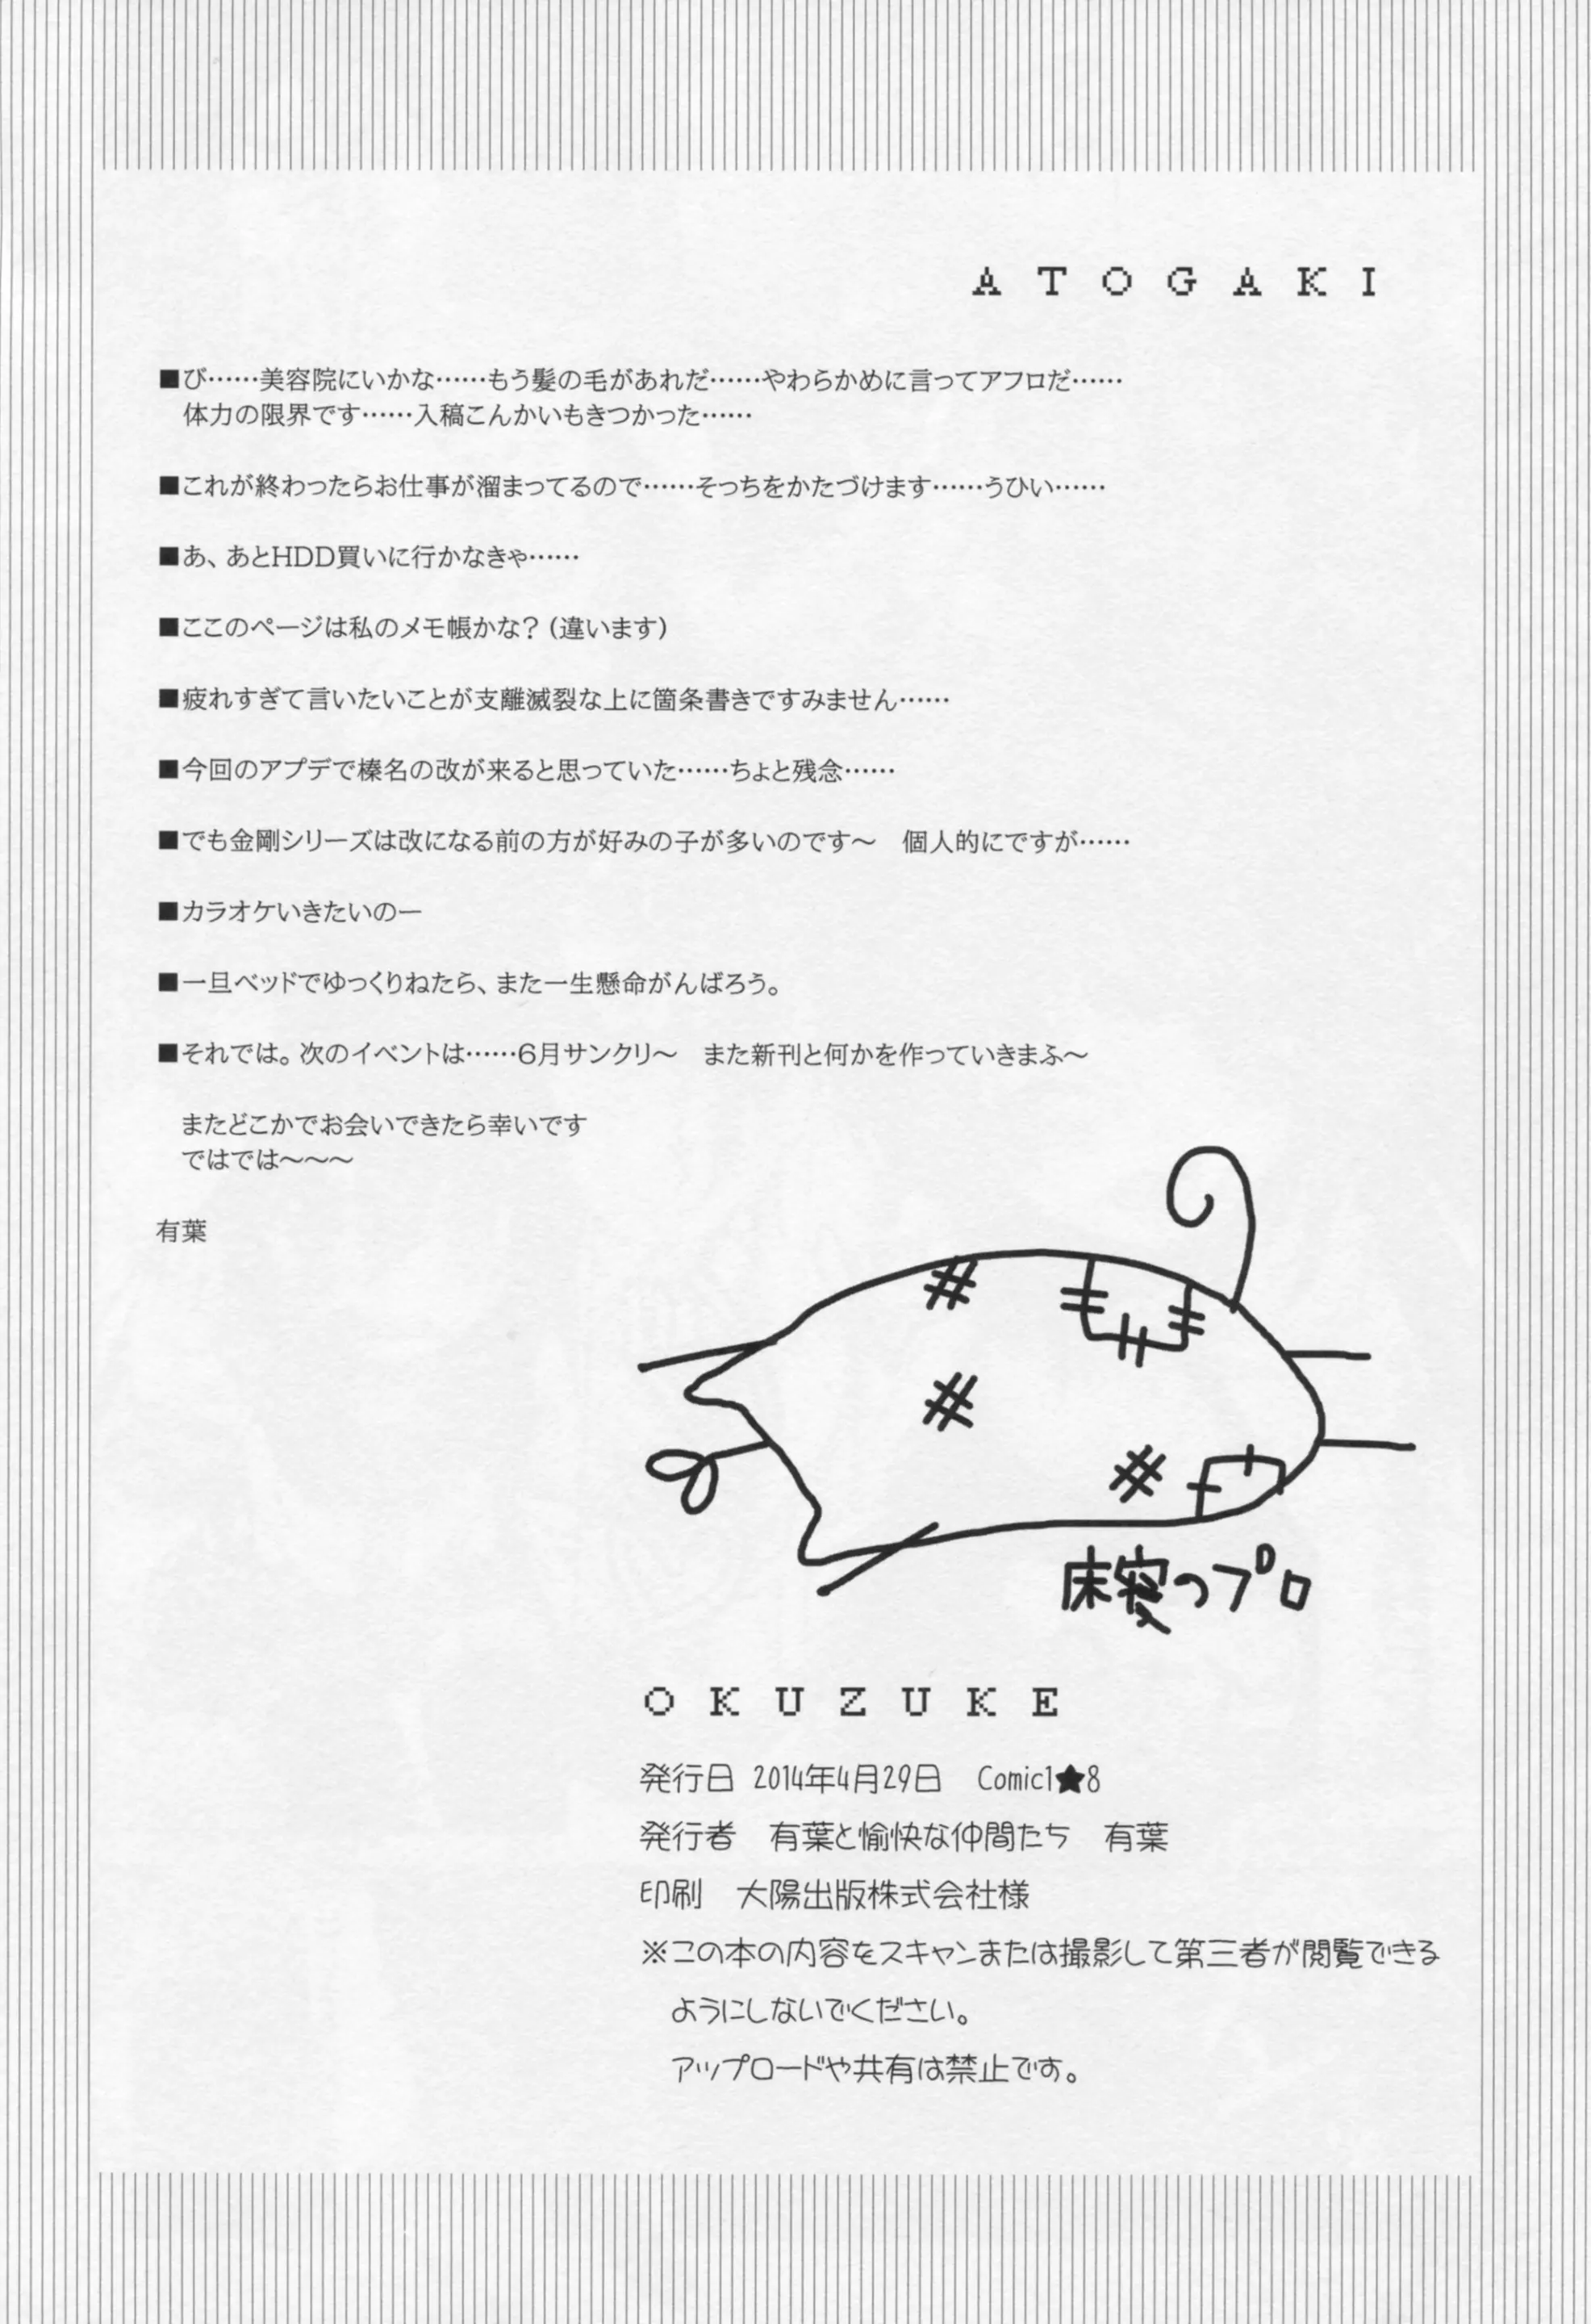 ATOGAKI
■び……美容院にいかな……もう髪の毛があれだ……やわらかめに言ってアフロだ……
体力の限界です……入稿こんかいもきつかった……
■これが終わったらお仕事が溜まってるので……そっちをかたづけます……うひい……
■あ、あとHDD買いに行かなきゃ……
■ここのページは私のメモ帳かな？（違います）
■疲れすぎて言いたいことが支離滅裂な上に箇条書きですみません……
■今回のアプデで榛名の改が来ると思っていた……ちょと残念……
■でも金剛シリーズは改になる前の方が好みの子が多いのです～　個人的にですが……
■カラオケいきたいのー
■一旦ベッドでゆっくりねたら、また一生懸命がんばろう。
■それでは。次のイベントは……6月サンクリ～　また新刊と何かを作っていきまふ～
またどこかでお会いできたら幸いです
ではでは～～～
有葉
床寝っプロ
OKUZUKE
発行日 2014年4月29日　Comic1★8
発行者　有葉と愉快な仲間たち　有葉
印刷　大陽出版株式会社様
※この本の内容をスキャンまたは撮影して第三者が閲覧できる
ようにしないでください。
アップロードや共有は禁止です。